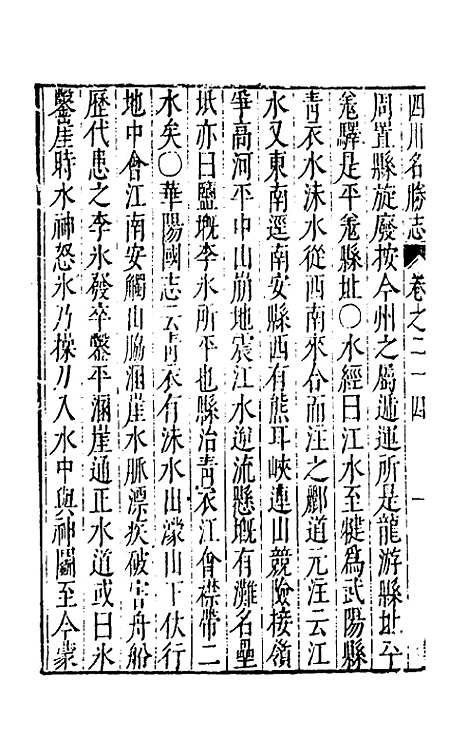 四川名勝志 卷之二十四 一
周置縣旋廢按今州之屬遞運所是龍游縣址平
羗驛是平羗縣址〇水經曰江水至犍爲武陽縣
青衣水沫水從西南來合而注之酈道元注云江
水又東南逕南安縣西有熊耳峽連山競險接嶺
爭高河平中山崩地震江水逆流懸溉有灘名壘
坻亦曰鹽溉李氷所平也縣治青衣江會襟帶二
水矣〇華陽國志云青衣有沫水出濛山下伏行
地中會江南安觸山脇溷崖水脈漂疾破害舟船
歷代患之李氷發卒鑿平溷崖通正水道或曰氷
鑿崖時水神怒氷乃操刀入水中與神鬭至今蒙